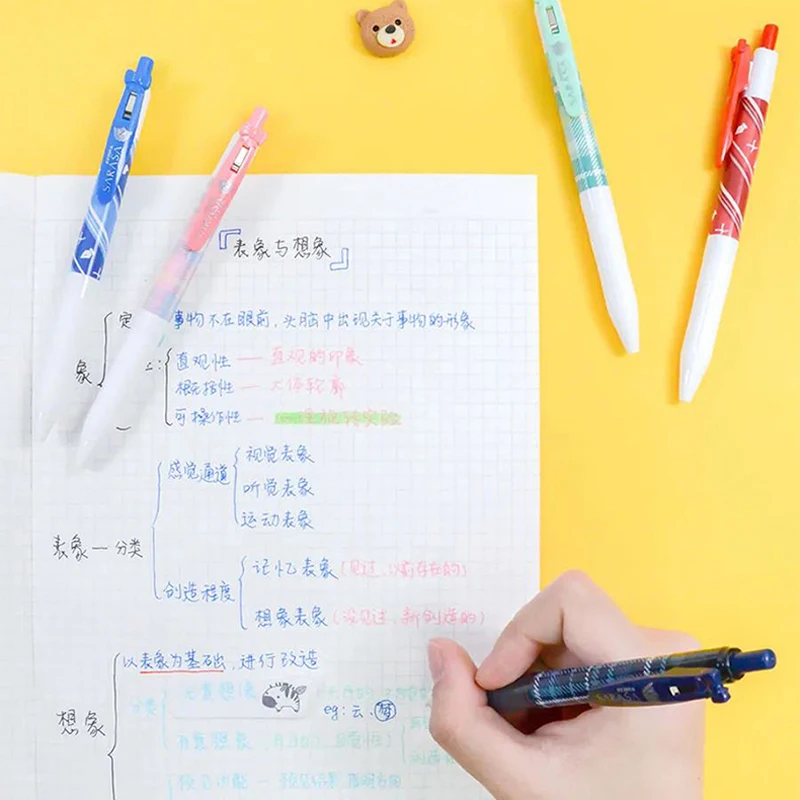 SARASA
『表象与想象』
定 事物不在眼前,头脑中出现关于事物的形象
象
直观性 — 直观的印象
概括性 — 大体轮廓
可操作性 —
感觉通道
视觉表象
听觉表象
运动表象
表象 — 分类
创造程度
记忆表象(见过、以前存在的)
想象表象(没见过、新创造的)
以表象为基础,进行改造
想象
分类
eg:云、梦